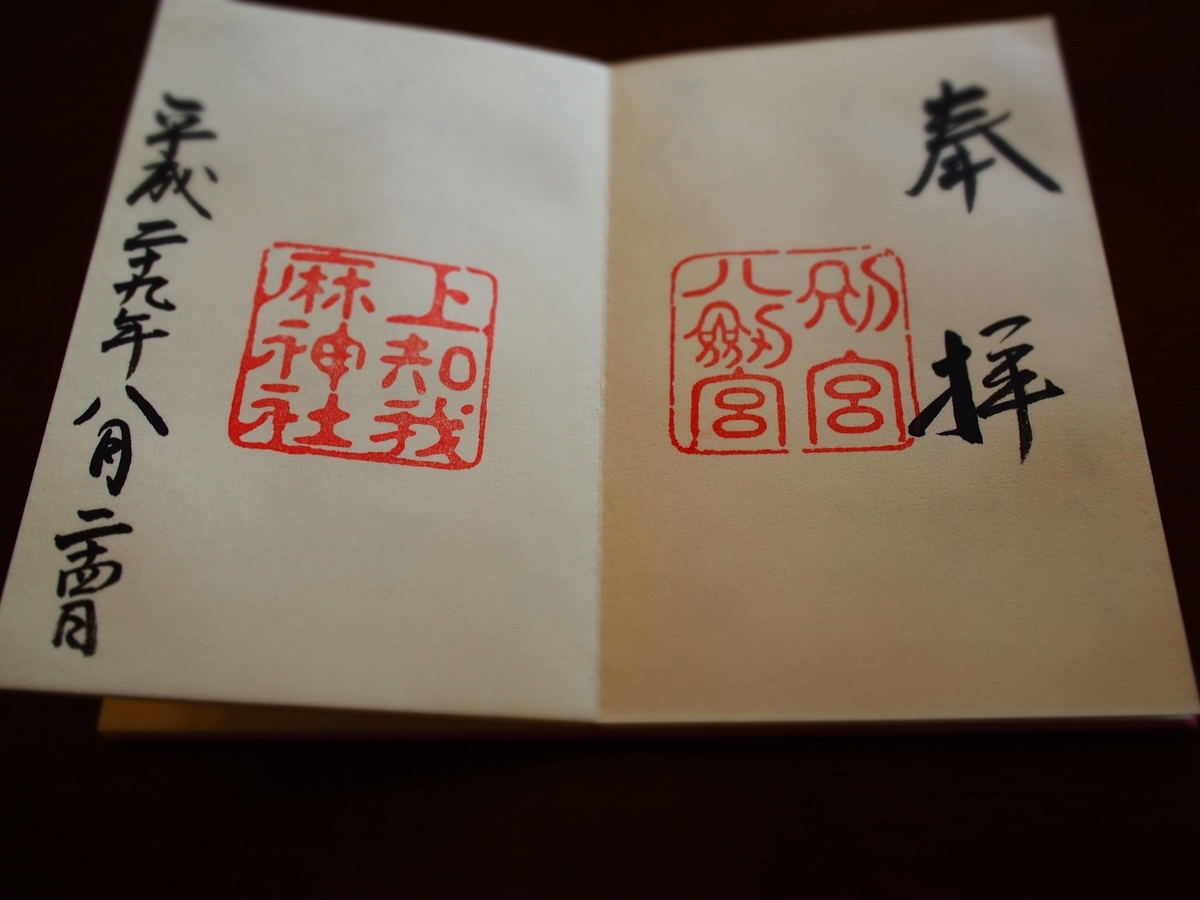 奉拝
別宮
八劔宮
上知我
麻神社
平成二十九年八月二十四日